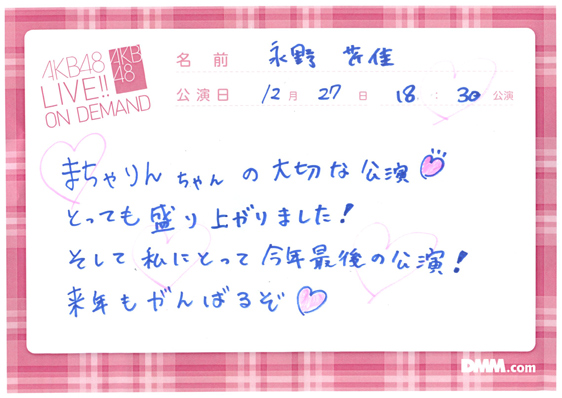 AKB48
LIVE!!
ON DEMAND
AKB
48
名前 永野 芹佳
公演日 12月 27日 18:30公演
まちゃりんちゃんの大切な公演
とっても盛り上がりました!
そして私にとって今年最後の公演!
来年もがんばるぞ
DMM.com